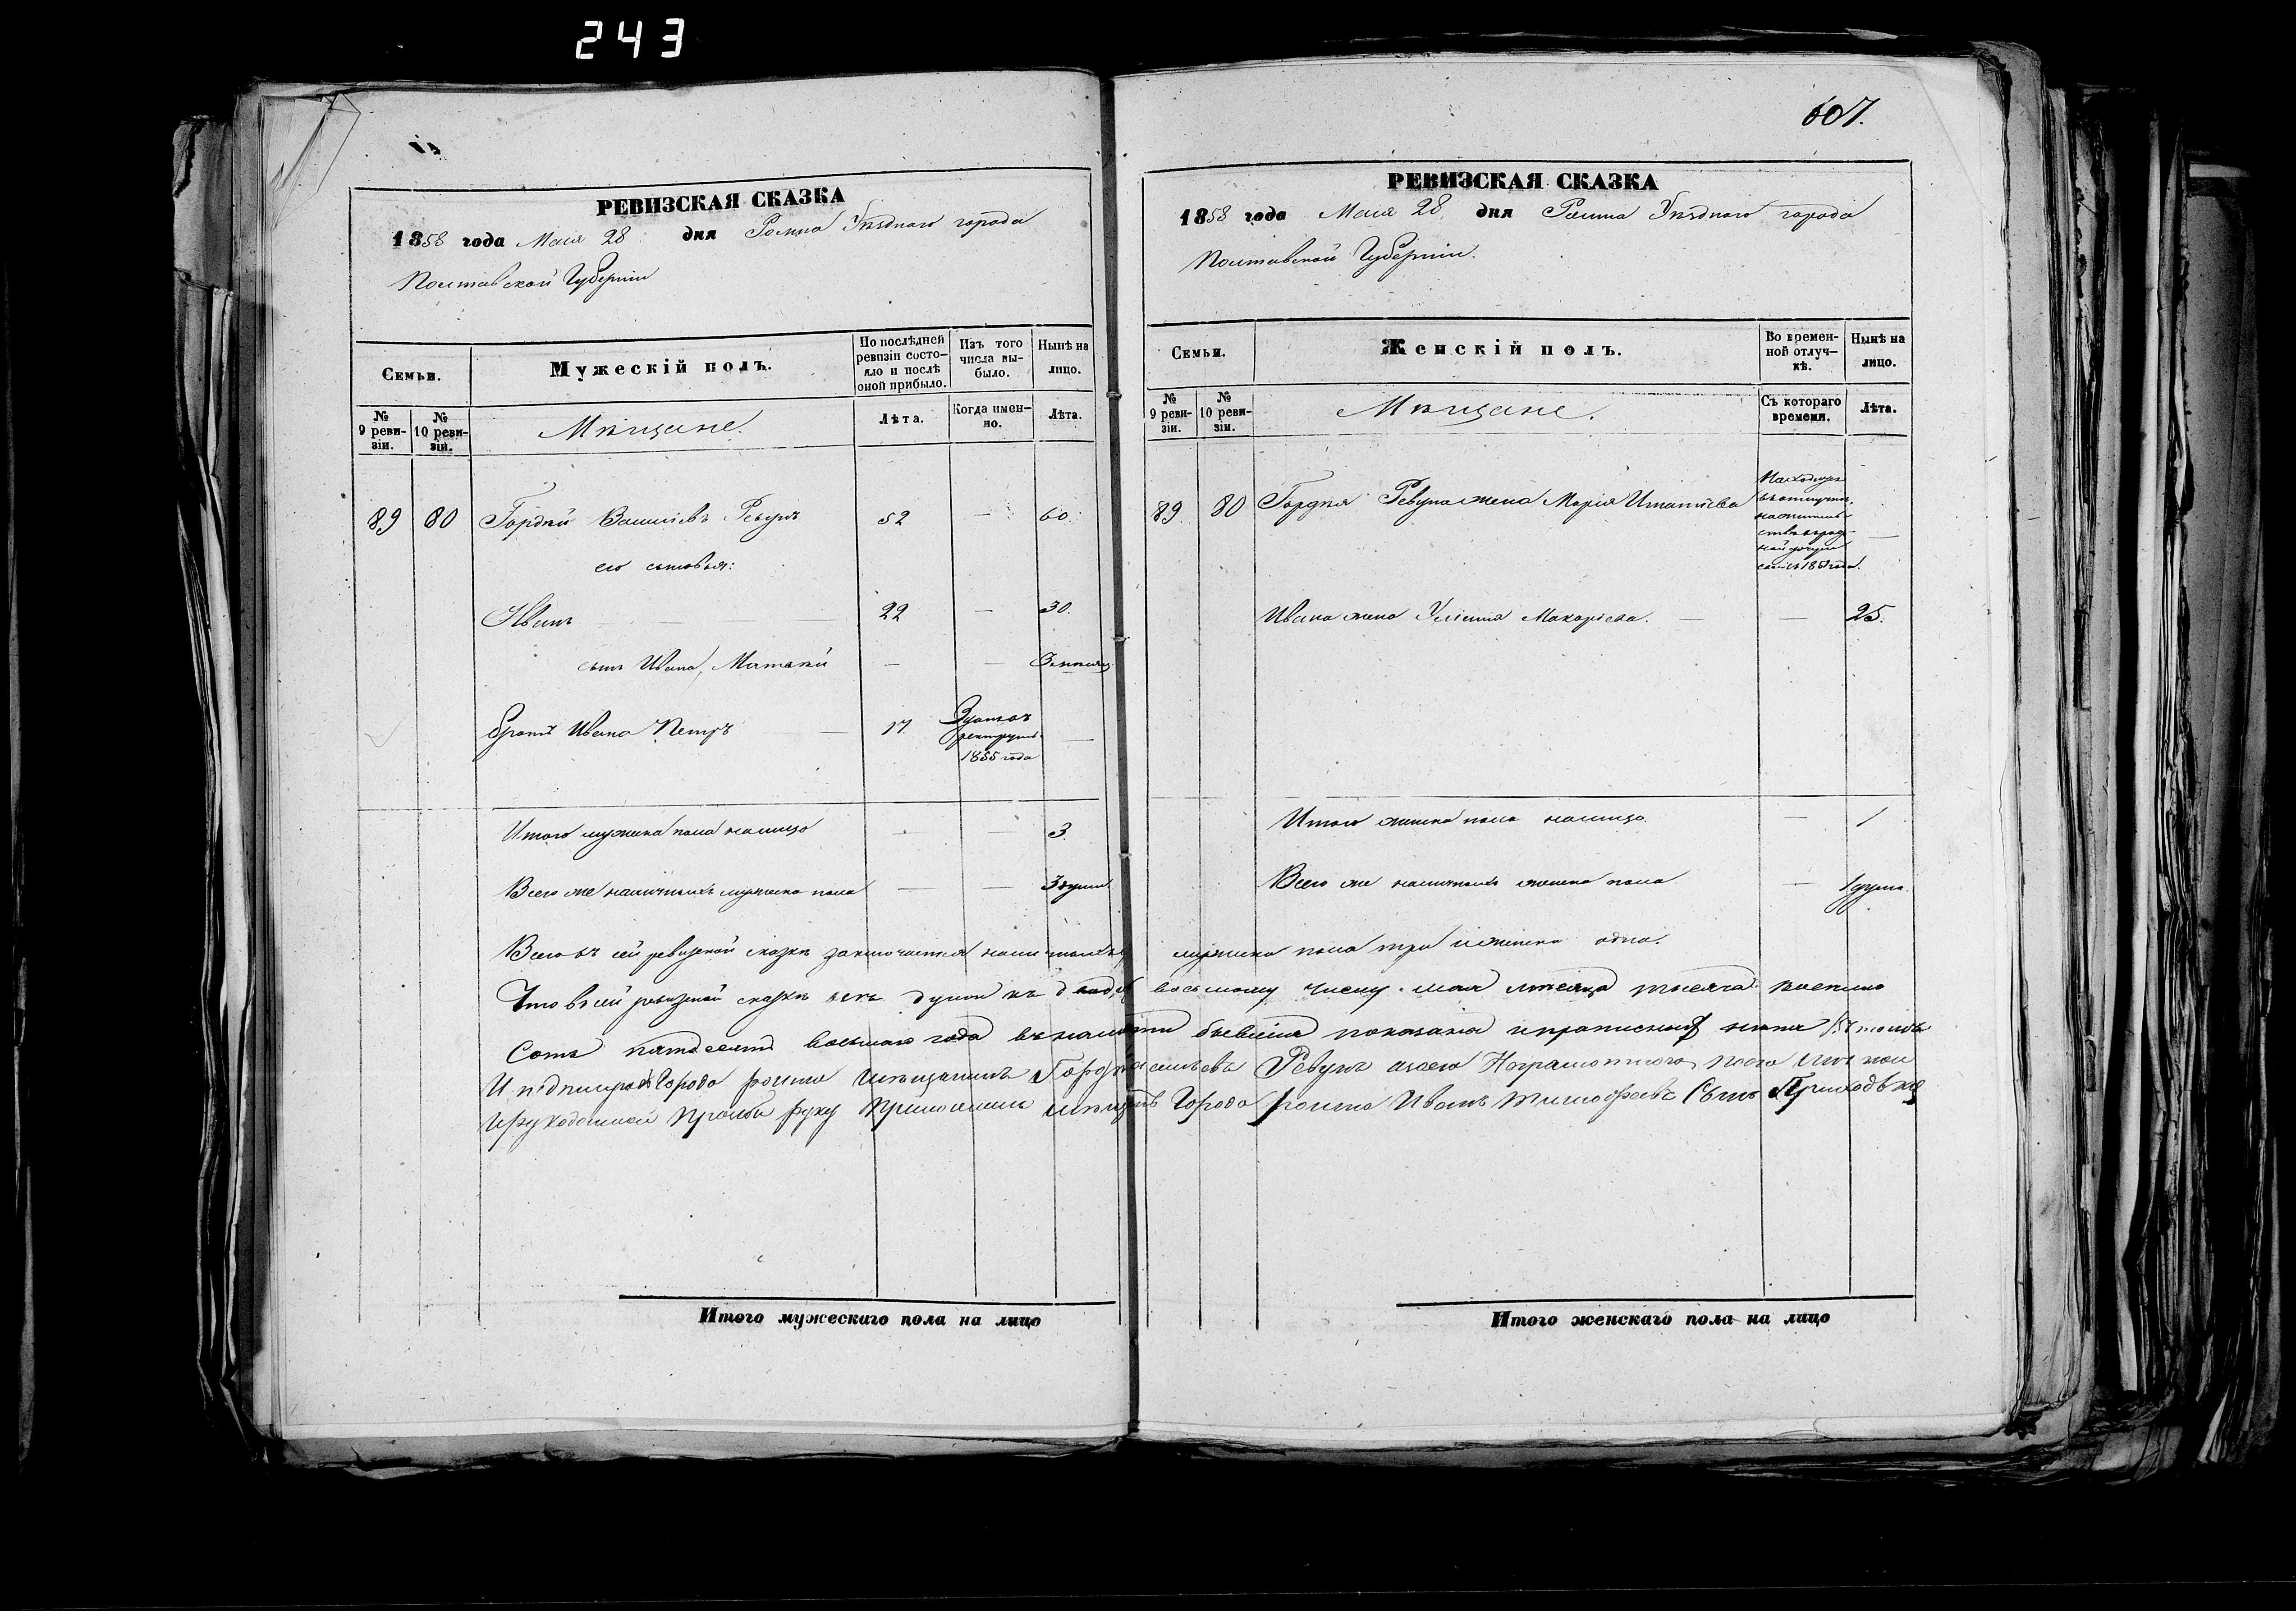 243
607.
РЕВИЗСКАЯ СКАЗКА
1858 года Маія 28 дня Ромна Уѣзднаго города
Полтавской Губерніи
Семьи.
Мужескій полъ.
По послѣдней ревизіи состояло и послѣ оной прибыло.
Изъ того числа выбыло.
Нынѣ на лицо.
№ 9 ревизіи.
№ 10 ревизіи.
Мѣщане.
Лѣта.
Когда именно.
Лѣта.
89 80 Гордѣй Васильевъ Ревунъ 52 — 60.
его сыновья:
Иванъ — 22 — 30.
сынъ Ивана, Матвѣй — —
братъ Ивана Петръ — 17. —
рекруты
1855 года
Итого мужеска пола налицо 3.
Всего же наличныхъ мужеска пола — — 3 души
РЕВИЗСКАЯ СКАЗКА
1858 года Маія 28 дня Ромна Уѣзднаго города
Полтавской Губерніи.
Семьи.
Женскій полъ.
Во временной отлучкѣ.
Нынѣ на лицо.
№ 9 ревизіи.
№ 10 ревизіи.
Мѣщане.
Съ котораго времени.
Лѣта.
89 80 Гордѣя Ревуна жена Марія Игнатіева —
Находится
въ отлучкѣ
Ивана жена Макаріева. — — 25.
Итого женска пола налицо. — 1
Всего же наличныхъ женска пола — 1 душа.
Всего въ сей ревизской сказкѣ заключается наличныхъ мужеска пола три и женска одна.
Что въ сей ревизской сказкѣ всѣ души къ восьмому числу мая мѣсяца тысяча восемь
Сотъ пятдесятъ восьмаго года въ бывшія показаны и прописной нѣтъ въ томъ
И подписуюсь Города Ромна мѣщанинъ Гордѣй Ревунъ а за его
руку приложилъ Города Ромна Иванъ Сынъ Приходько
Итого мужескаго пола на лицо
Итого женскаго пола на лицо